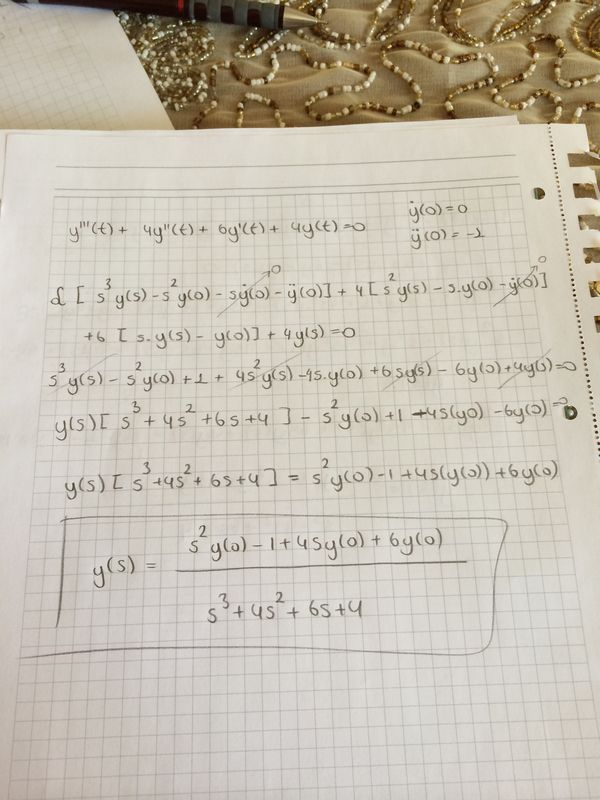 y'''(t) + 4y''(t) + 6y'(t) + 4y(t) = 0 ẏ(0) = 0
ÿ(0) = -1
ℒ [ s³y(s) - s²y(0) - sẏ(0) - ÿ(0)] + 4 [ s²y(s) - s.y(0) - ẏ(0)]
0 0
+6 [ s.y(s) - y(0)] + 4y(s) = 0
s³y(s) - s²y(0) + 1 + 4s²y(s) - 4s.y(0) + 6sy(s) - 6y(0) + 4y(s) = 0
y(s) [ s³ + 4s² + 6s + 4 ] - s²y(0) + 1 - 4s(y0) - 6y(0) = 0
y(s) [ s³ + 4s² + 6s + 4 ] = s²y(0) - 1 + 4s(y(0)) + 6y(0)
s²y(0) - 1 + 4sy(0) + 6y(0)
y(s) =
s³ + 4s² + 6s + 4